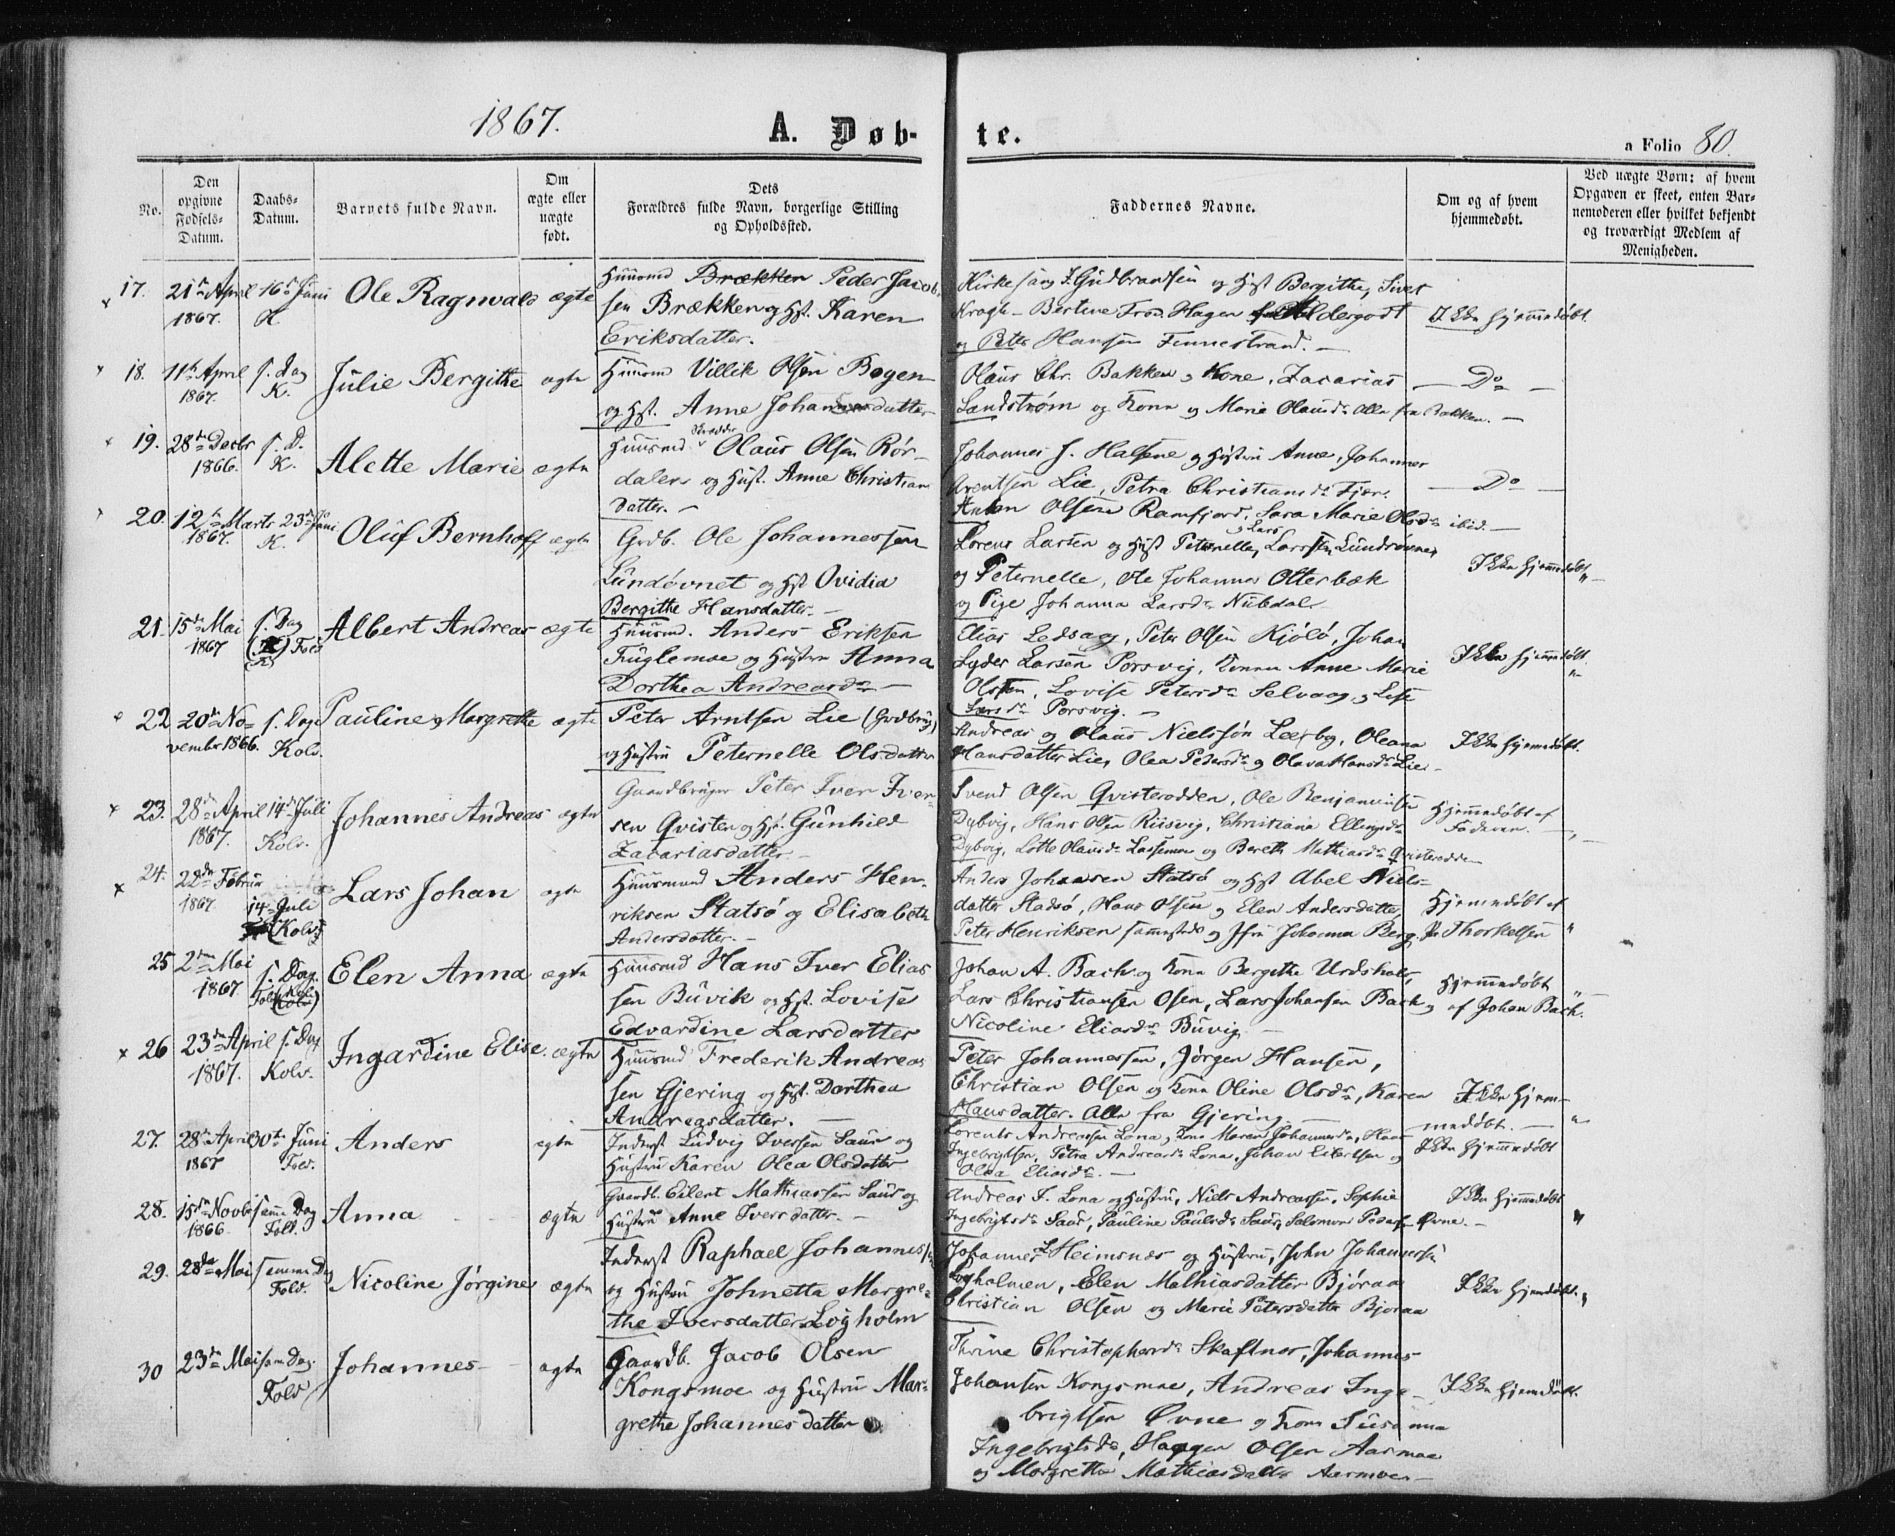 1867.
A. Døb-
te.
a Folio 80.
No.
Den opgivne Fødsels-Datum.
Daabs-Datum.
Barnets fulde Navn.
Om ægte eller uægte født.
Dets Forældres fulde Navn, borgerlige Stilling og Opholdssted.
Faddernes Navne.
Om og af hvem hjemmedøbt.
Ved uægte Børn: af hvem Opgaven er skeet, enten Barnemoderen eller hvilket bekjendt og troværdigt Medlem af Menigheden.
17. 21de April 1867. 16de Juni K. Ole Ragnvald ægte
Huusmd Brækken Peder Jacob-
sen Brækken og Hst. Karen
Eriksdatter.
Kirkesang. J. Gudbrandsen og Hust Bergithe, Sivert
Kragh - Bertine Hagen Aldergodt
og Peter Hansen Finnestrand. -
Ikke hjemmedøbt.
18. 11te April 1867. s. Dag K. Julie Bergithe ægte
Huusmd Villik Olsen Bogen
og Hst. Anne Johannesdatter
Olaus Chr. Bakken og Kone, Zacarias
Landstrøm og Kone og Marie Olausdr alle fra Bakken. -
Do
19. 28de Decbr 1866. s. D. K. Alette Marie ægte
Huusmd Skrædder Olaus Olsen Rør-
dalen og Hust. Anne Christians
datter. -
Johannes J. Halsene og Hustru Anne, Johannes
Arentsen Lie, Petra Christiansdr Fjær.
Anton Olsen Ramfjord, Sara Marie Olsdr ibid. -
Do
20. 12te Marts 1867. 23de Juni K. Oluf Bernhoff ægte
Grdb. Ole Johannessen
Lundøvnet og Hst Ovidia
Bergithe Hansdatter. -
Lorens Larsen og Hust Peternelle, og Lars Larssen Lundrøvnes
og Peternelle, Ole Johanna Otterbæk
og Pige Johanna Larsdr Nubdal
Ikke hjemmedøbt
21. 15de Mai 1867 s. Dag Fold Albert Andreas ægte
Huusmd. Anders Eriksen
Fuglemoe og Hustru Anna
Dorthea Andreasdr -
Elias Ledsaag, Peter Olsen Kjølø, Johan
Lyder Larsen Porsvig, Konen Anne Marie
Olsen, Lovise Petersdr Selvaag og Lise
Larsdr Porsvig. -
Ikke hjemmedøbt.
22 20de November 1866. s. Dag Kolv. Pauline Margrethe ægte
Peter Arntsen Lie (Grdbrug)
og Hustru Peternelle Olsdatter
Andreas og Olaus Nielssøn Leerby, Oleana
Hansdatter Lie, Olea Petersdr og Olava Hansdr Lie -
Ikke hjemmedøbt.
23. 28de April 1867. 14de Juli Kolv. Johannes Andreas ægte
Gaardbruger Peter Iver Iver-
sen Qvisten og Hst. Gunhild
Zacariasdatter. -
Svend Olsen Qvisterodden, Ole Benjaminsen
Dybvig, Hans Olsen Riisvig, Christiana Ellingsdr
Dybvig, Lotte Olausdr Lassemoe og Bereth Mathiasdr Qvisterodden
Hjemmedøbt af
Faderen. -
24. 22de Februar 1867 14de Juli (Kolv) Lars Johan ægte
Huusmand Anders Hen-
riksen Statsø og Elisabeth
Andersdatter. -
Anders Johansen Statsø og Hst Abel Niels-
datter Stadsø, Hans Olsen og Elen Andersdatter,
Peter Henriksen sammesteds og Jfru Johanna Berg.
Hjemmedøbt af
P. Thorkelsen
25 2den Mai 1867 s. Dag. Elen Anna ægte
Huusmd Hans Iver Elias
sen Buvik og Hst. Lovise
Edvardine Larsdatter
Johan A. Bach og Kone Bergithe Urdshals,
Lars Christiansen Osen, Lars Johansen Bach og
Nicoline Eliasdr Buvig. -
Hjemmedøbt
af Johan Bach.
26 23de April 1867. s. Dag Kolv. Ingardine Elise. ægte
Huusmd Frederik Andreas
sen Gjering og Hst. Dorthea
Andreasdatter. -
Peter Johannessen, Jørgen Hansen,
Christian Olsen og Kone Oline Olsdr, Karen
Hansdatter. Alle fra Gjering
Ikke hjem-
medøbt. -
27. 28de April 1867 30te Juni Fold. Anders ægte
Inderst Ludvig Iversen Saur og
Hustru Karen Olea Olsdatter
Lorents Andreassen Lona, Kone Maren Johannesdr, Hans
Ingebrigtsen, Petra Andreasdr Lona, Johan Eilertsen og
Olea Eliasdr. -
Ikke hjemmedøbt
28. 15de Novbr 1866. samme Dag Fold. Anna ægte
Gaardb. Eilert Mathiassen Saur og
Hustru Anne Iversdatter. -
Andreas J. Lona og Hustru, Niels Andreassen, Sophie
Ingebrigtsdr Saur, Pauline Paulsdr Saur, Salomon Pedersen Øvne. -
Ikke hjemmedøbt
29. 28de Mai samme Dag Fold. Nicoline Jørgine ægte
Inderst Raphael Johannessen
og Hustru Johnetta Margre-
the Iversdatter Løgholm
Johannes Heimsnæs og Hustru, John Johannessen
Løgholmen, Elen Mathiasdatter Bjøraa
Christian Olsen og Marie Petersdatter Bjøraa
Ikke hjemdøbt.
30 23de Mai sam Dag. Fold Johannes ægte
Gaardb. Jacob Olsen
Kongsmoe og Hustru Mar-
grethe Johannesdatter
Thrine Christophersdr Skaflnes, Johannes
Johansen Kongsmoe, Andreas Inge-
brigtsen Øvne og Kone Susanna
Ingebrigtsdr, Hagen Olsen Aarmoe
og Margrethe Mathiasdatter Aarmoen -
Ikke hjemmedøbt.